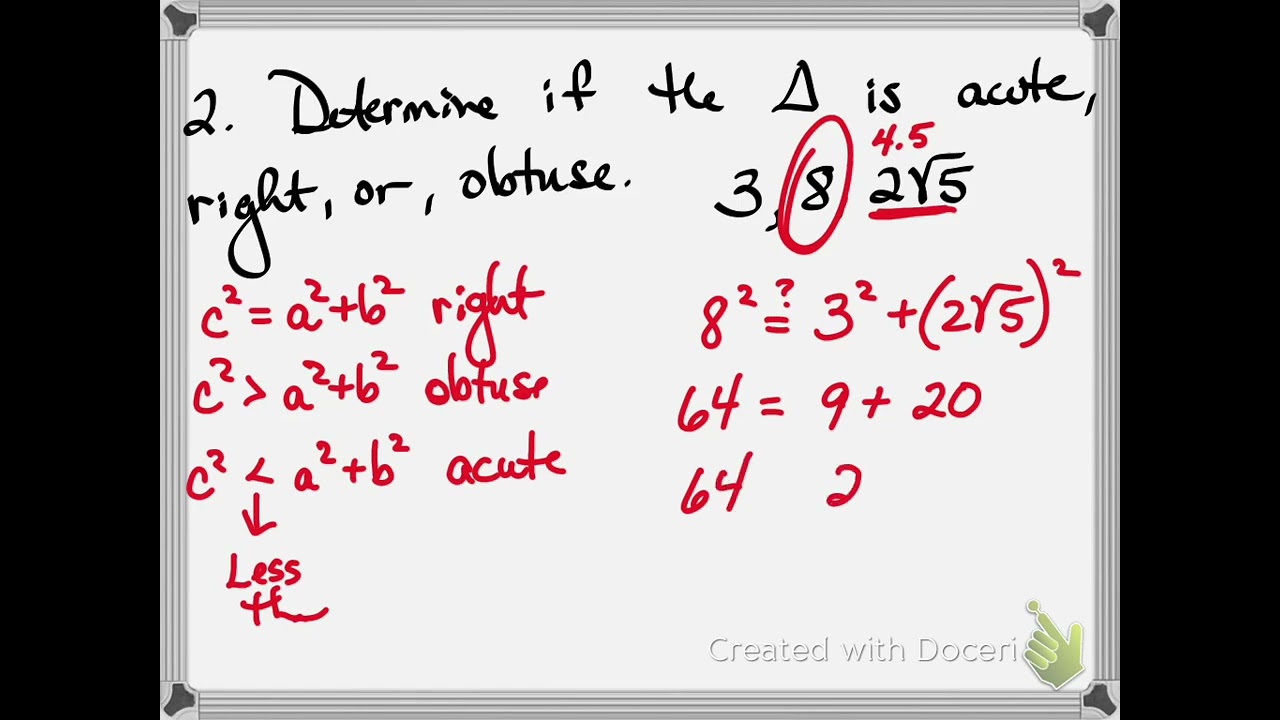 2. Determine if the Δ is acute,
right, or, obtuse. 3, 8 2√5
4.5
c² = a² + b² right
c² > a² + b² obtuse
c² < a² + b² acute
↓
Less
th
8² ≟ 3² + (2√5)²
64 = 9 + 20
64 2
Created with Doceri